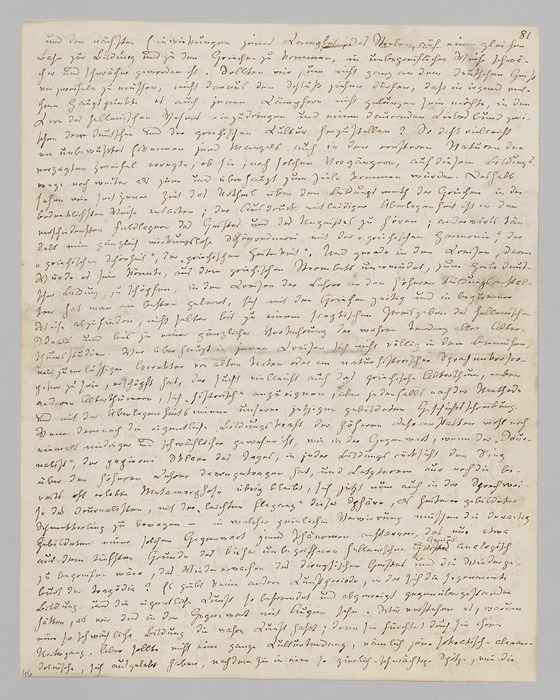 81
und den nächsten Einwirkungen jener Kämpfe, das Streben auf einer gleichen
Bahn zur Bildung und zu den Griechen zu kommen, in unbegreiflicher Weise schwä-
cher und schwächer geworden ist. Sollten wir, um nicht ganz an dem deutschen Geist
verzweifeln zu müssen, nicht daraus den Schluß ziehen dürfen, daß in irgend wel-
chem Hauptpunkte es auch jenen Kämpfern nicht gelungen sein möchte, in den
Kern des hellenischen Wesens einzudringen und einen dauernden Liebesbund zwi-
schen der deutschen und der griechischen Kultur herzustellen? So daß vielleicht
ein unbewußtes Erkennen jenes Mangels auch in den ernsteren Naturen den
verzagten Zweifel erregte, ob sie, nach solchen Vorgängern, auf diesem Bildungs-
wege noch weiter als jene und überhaupt zum Ziele kommen würden. Deshalb
sehen wir seit jener Zeit das Urtheil über den Bildungswerth der Griechen in der
bedenklichsten Weise entarten; der Ausdruck mitleidiger Überlegenheit ist in den
verschiedensten Feldlagern des Geistes und des Ungeistes zu hören; anderwärts tän-
delt eine gänzlich wirkungslose Schönrednerei mit der „griechischen Harmonie", der
„griechischen Schönheit", der „griechischen Heiterkeit". Und gerade in den Kreisen, deren
Würde es sein könnte, aus dem griechischen Strombett unermüdet, zum Heile deut-
scher Bildung, zu schöpfen, in den Kreisen der Lehrer an den höheren Bildungsanstal-
ten hat man am besten gelernt, sich mit den Griechen zeitig und in bequemer
Weise abzufinden, nicht selten bis zu einem skeptischen Preisgeben des hellenischen
Ideals und bis zu einer gänzlichen Verkehrung der wahren Tendenz aller Alter-
thumsstudien. Wer überhaupt in jenen Kreisen sich nicht völlig in dem Bemühen,
ein zuverlässiger Corrector von alten Texten oder ein naturhistorischer Sprachmikrosko-
piker zu sein, erschöpft hat, der sucht vielleicht auch das griechische Alterthum, neben
anderen Alterthümern, sich „historisch" anzueignen, aber jedenfalls nach der Methode
und mit der Überlegenheitsmiene unserer jetzigen gebildeten Geschichtsschreibung.
Wenn demnach die eigentliche Bildungskraft der höheren Lehranstalten wohl noch
niemals niedriger und schwächlicher gewesen ist, wie in der Gegenwart, wenn der „Jour-
nalist", der papierne Sklave des Tages, in jeder Bildungsrücksicht den Sieg
über den höheren Lehrer davongetragen hat, und Letzterem nur noch die be-
reits oft erlebte Metamorphose übrig bleibt, sich jetzt nun auch in der Sprechwei-
se des Journalisten, mit der „leichten Eleganz" dieser Sphäre, als heiterer gebildeter
Schmetterling zu bewegen – in welcher peinlichen Verwirrung müssen die derartig
Gebildeten einer solchen Gegenwart jenes Phänomen anstarren, das nur etwa
aus dem tiefsten Grunde des bisher unbegriffenen hellenischen Genius analogisch
zu begreifen wäre, das Wiedererwachen des dionysischen Geistes und die Wiederge-
burt der Tragödie? Es giebt keine andere Kunstperiode, in der sich die sogenannte
Bildung und die eigentliche Kunst so befremdet und abgeneigt gegenübergestanden
hätten, als wir das in der Gegenwart mit Augen sehn. Wir verstehen es, warum
eine so schwächliche Bildung die wahre Kunst haßt; denn sie fürchtet durch sie ihren
Untergang. Aber sollte nicht eine ganze Culturtendenz, nämlich jene sokratisch-alexan-
drinische, sich ausgelebt haben, nachdem sie in eine so zierlich-schmächtige Spitze, wie die